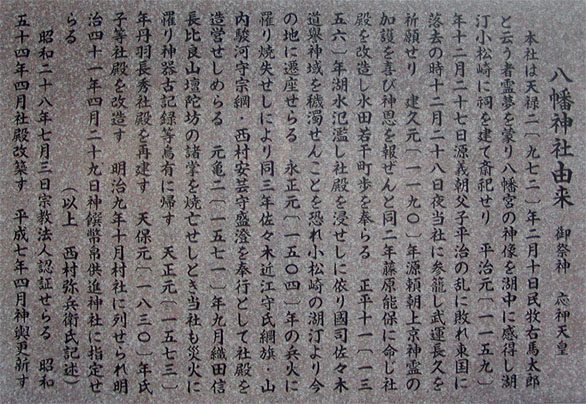 八幡神社由来　御祭神　応神天皇
本社は天禄二（九七二）年二月十日民牧右馬太郎
と云う者霊夢を蒙り八幡宮の神像を湖中に感得し湖
汀小松崎に祠を建て斎祀せり　平治元〔一一五九〕
年十二月二十七日源義朝父子平治の乱に敗れ東国に
落去の時十二月二十八日夜当社に参籠し武運長久を
祈願せり　建久元〔一一九〇〕年源頼朝上京神霊の
加護を喜び神恩を報ぜんと同二年藤原能保に命じ社
殿を改造し水田若干町歩を奉らる　正平十一〔一三
五六〕年湖水氾濫し社殿を浸せしに依り國司佐々木
道擧神域を穢濁せんことを恐れ小松崎の湖汀より今
の地に遷座せらる　永正元〔一五〇四〕年の兵火に
罹り焼失せしにより同三年佐々木近江守氏綱旗・山
内駿河守宗綱・西村安芸守盛澄を奉行として社殿を
造営せしめらる　元亀二〔一五七一〕年九月織田信
長比良山壇陀坊の諸堂を焼亡せしとき当社も災火に
罹り神器古記録等烏有に帰す　天正元〔一五七三〕
年丹羽長秀社殿を再建す　天保元〔一八三〇〕年氏
子等社殿を改造す　明治九年十月村社に列せられ明
治四十一年四月二十九日神饌幣帛供進神社に指定せ
らる
（以上　西村弥兵衛氏記述）
昭和二十八年七月三日宗教法人認証せらる　昭和
五十四年四月社殿改築す　平成七年四月神輿更新す